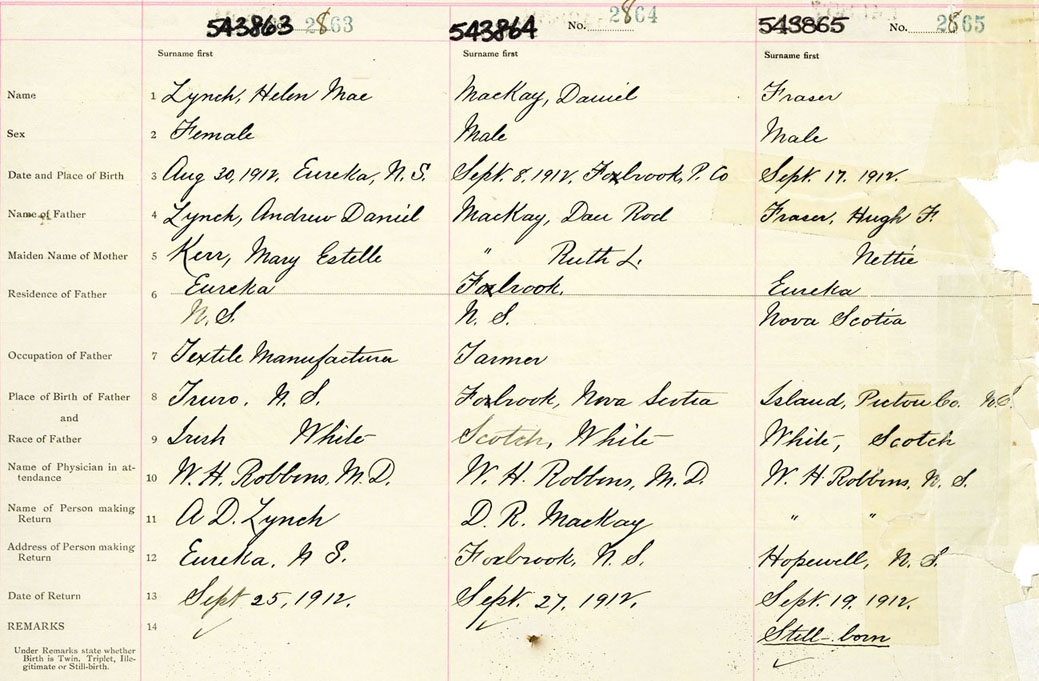 543863 2863 543864 No. 2864 543865 No. 2865
Surname first Surname first Surname first
Name 1 Lynch, Helen Mae MacKay, Daniel Fraser
Sex 2 Female Male Male
Date and Place of Birth 3 Aug 30, 1912, Eureka, N.S. Sept. 8. 1912, Foxbrook, P. Co Sept. 17. 1912.
Name of Father 4 Lynch, Andrew Daniel MacKay, Dan Rod Fraser, Hugh F.
Maiden Name of Mother 5 Kerr, Mary Estelle " Ruth L. Nettie
Residence of Father 6 Eureka Foxbrook. Eureka
N.S. N.S. Nova Scotia
Occupation of Father 7 Textile Manufacturer Farmer
Place of Birth of Father 8 Truro, N.S. Foxbrook, Nova Scotia Island, Pictou Co. N.S.
and
Race of Father 9 Irish White Scotch, White White, Scotch
Name of Physician in at-
tendance 10 W. H. Robbins, M.D. W. H. Robbins, M.D. W. H. Robbins, N.S.
Name of Person making
Return 11 A D. Lynch D. R. MacKay " "
Address of Person making
Return 12 Eureka, N S. Foxbrook, N.S. Hopewell, N.S.
Date of Return 13 Sept 25, 1912. Sept. 27, 1912. Sept. 19, 1912.
REMARKS 14 Still-born
Under Remarks state whether
Birth is Twin, Triplet, Ille-
gitimate or Still-birth.